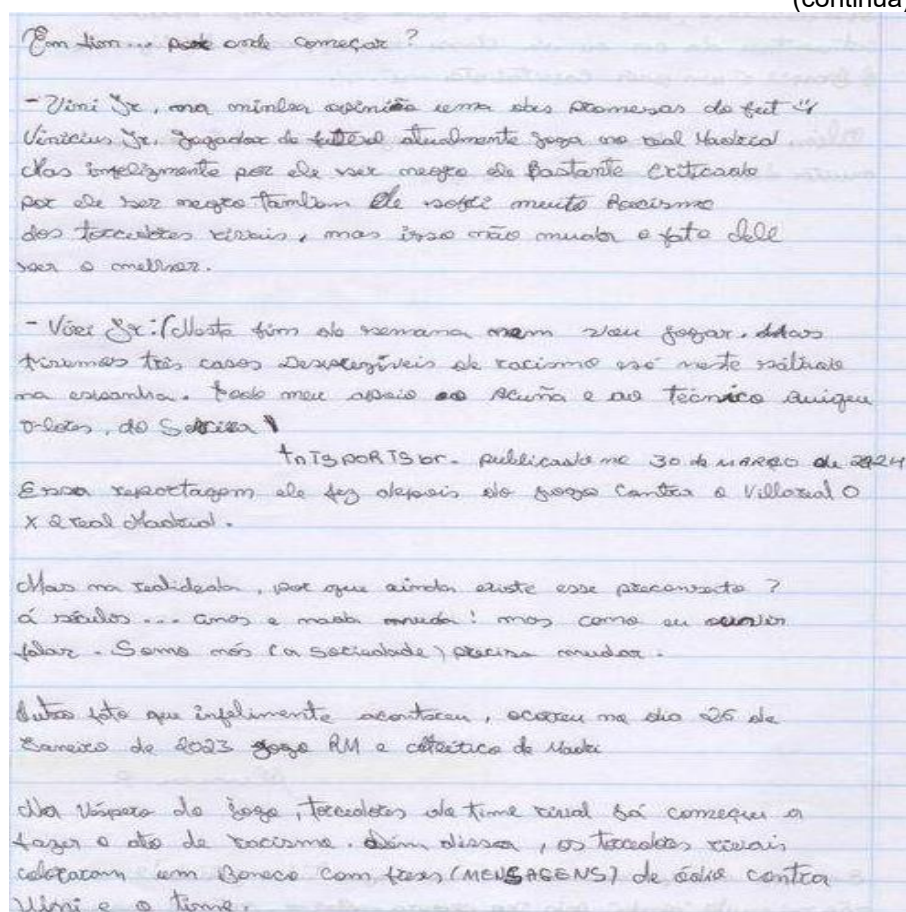 (continua)
Em fim... por onde começar?
- Vini Jr, na minha opinião uma das promesas do fut
Vinicius Jr. Jogador de futebol atualmente joga no real Madrid
Mas infelizmente por ele ser negro ele Bastante Criticado
por ele ser negro tambem Ele sofri muito Racismo
dos torcedores rivais, mas isso não muda o fato dele
ser o melhor.
- Vini Jr: (Neste fim de semana nem vou jogar. Mas
tivemos três casos Desprezíveis de racismo só neste sábado
na espanha. todo meu apoio ao Acuña e ao técnico
Flores, do Sevilla
publicado no 30 de MARÇO de 2024
Essa reportagem ele fez depois do jogo Contra o Villareal 0
X 2 real Madrid.
Mas na realidade, por que ainda existe esse preconseito?
á séculos... anos e nada muda! mas como eu
falar. Somo nós (a sociedade) precisa mudar.
Outro fato que infelimente aconteceu, ocorreu no dia 26 de
Janeiro de 2023 jogo RM e de
Na Véspera do jogo, torcedores do time rival já começou a
fazer o ato de racismo. Além dissoa, os torcedores rivais
colocaram um Boneco Com frases (MENSAGENS) de ódio contra
Vini e o time.